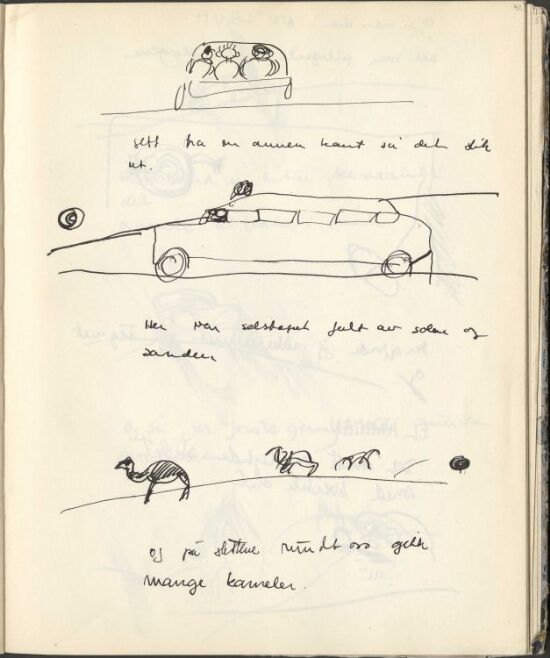 sett fra en annen kant så det slik
ut.
Her var selskapet fult av solen og
sanden
og på slettene rundt oss gikk
mange kameler.